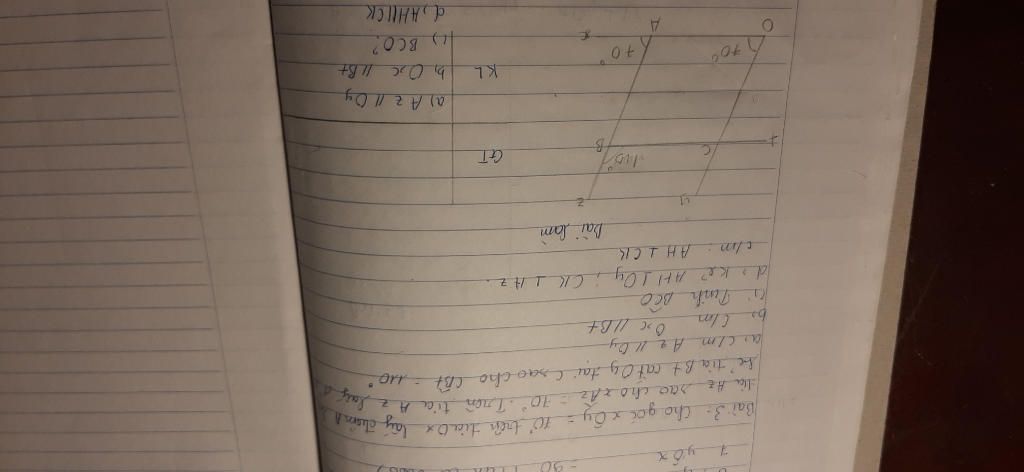 7 yÔx = 90
Bài 3: Cho góc xÔy = 70° trên tia Ox lấy điểm A
tia Az sao cho xÂz = 70°. Trên tia Az lấy
kẻ tia Bt cắt Oy tại C sao cho zBt = 110°
a, c/m Az // Oy
b, c/m Ox // Bt
c, Tính BĈO
d, Kẻ AH ⊥ Oy ; CK ⊥ Az.
c/m: AH ⊥ CK
Bài làm
y
z
GT
t
C
B
110°
a) Az // Oy
KL
b, Ox // Bt
c) BCO?
d, AH // CK
70°
70°
O
A
x